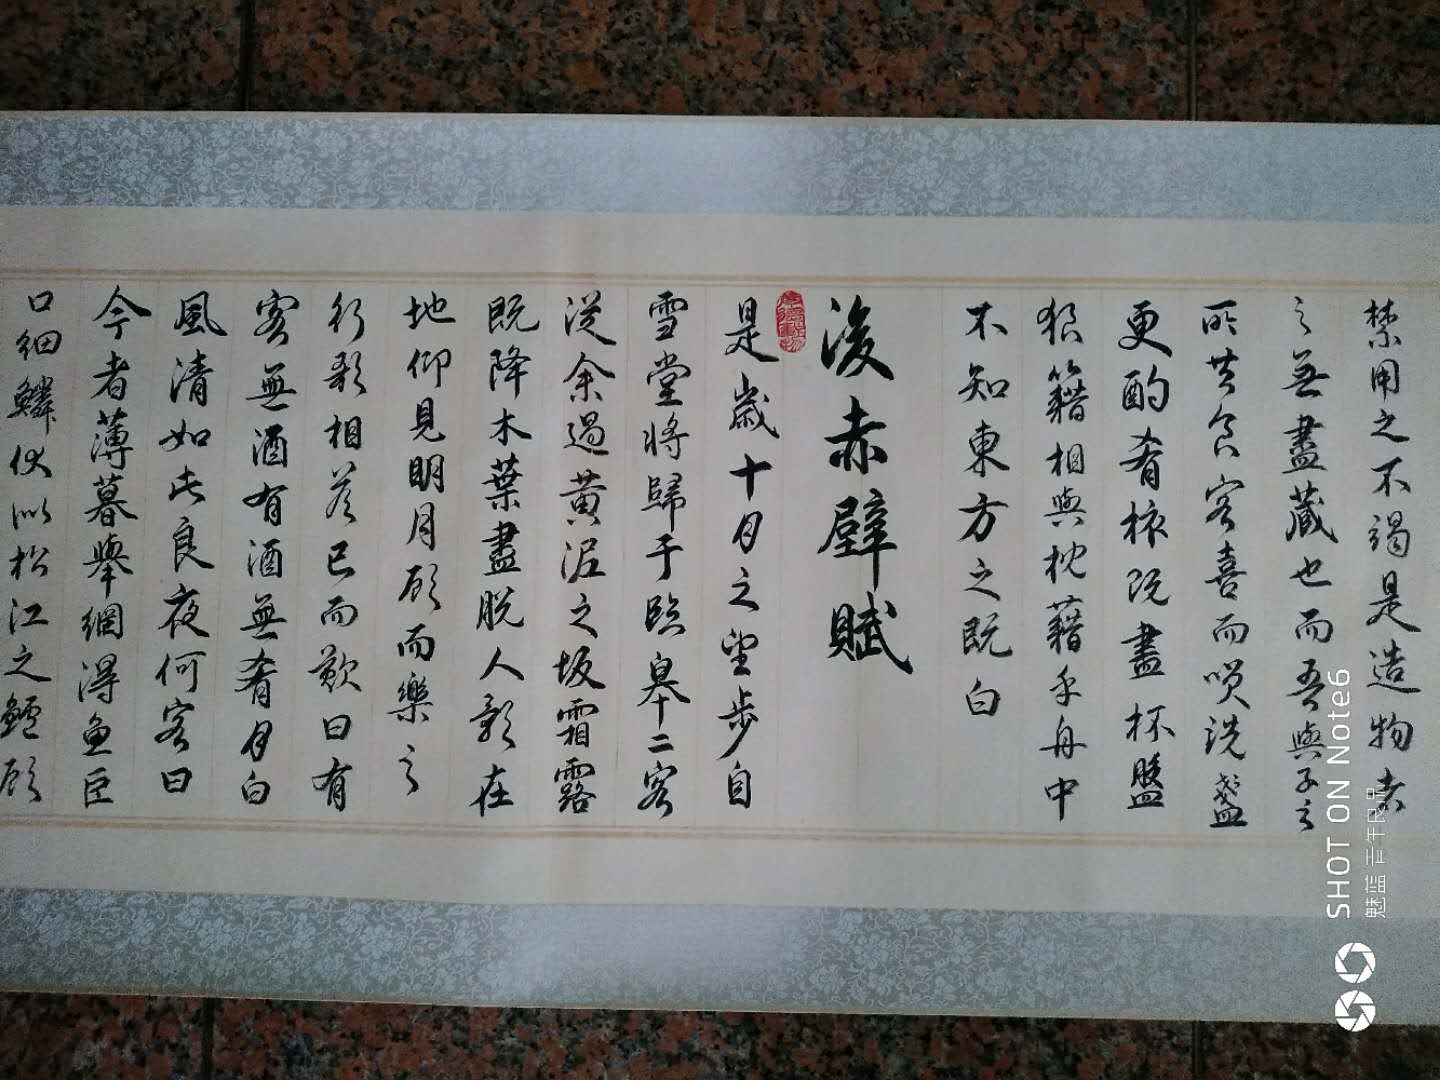 禁用之不竭是造物者
之無盡藏也而吾與子之
所共食客喜而笑洗盞
更酌肴核既盡杯盤
狼籍相與枕藉乎舟中
不知東方之既白
後赤壁賦
厚德載物
是歲十月之望步自
雪堂將歸于臨皋二客
從余過黃泥之坂霜露
既降木葉盡脫人影在
地仰見明月顧而樂之
行歌相答已而歎曰有
客無酒有酒無肴月白
風清如此良夜何客曰
今者薄暮舉網得魚巨
口細鱗狀似松江之鱸顧
SHOT ON Note6
魅蓝 青年良品